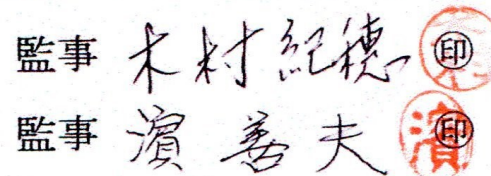 監事 木村紀穂 ㊞
監事 濵善夫 ㊞ 濵